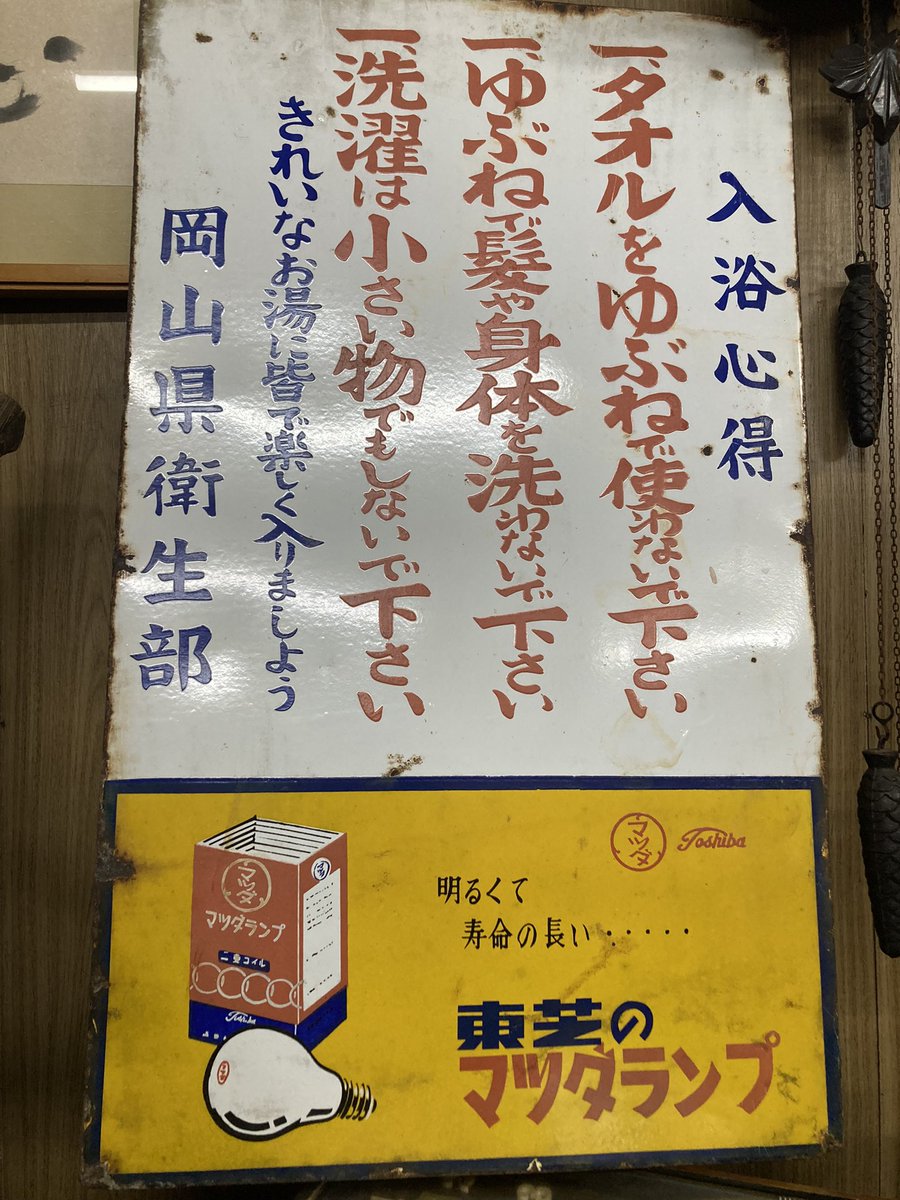 入浴心得
一、タオルをゆぶねで使わないで下さい
一、ゆぶねで髪や身体を洗わないで下さい
一、洗濯は小さい物でもしないで下さい
きれいなお湯に皆で楽しく入りましよう
岡山県衛生部
マツダ Toshiba
明るくて
寿命の長い・・・・・
東芝の
マツダランプ
マツダ
マツダランプ
二重コイル
Toshiba